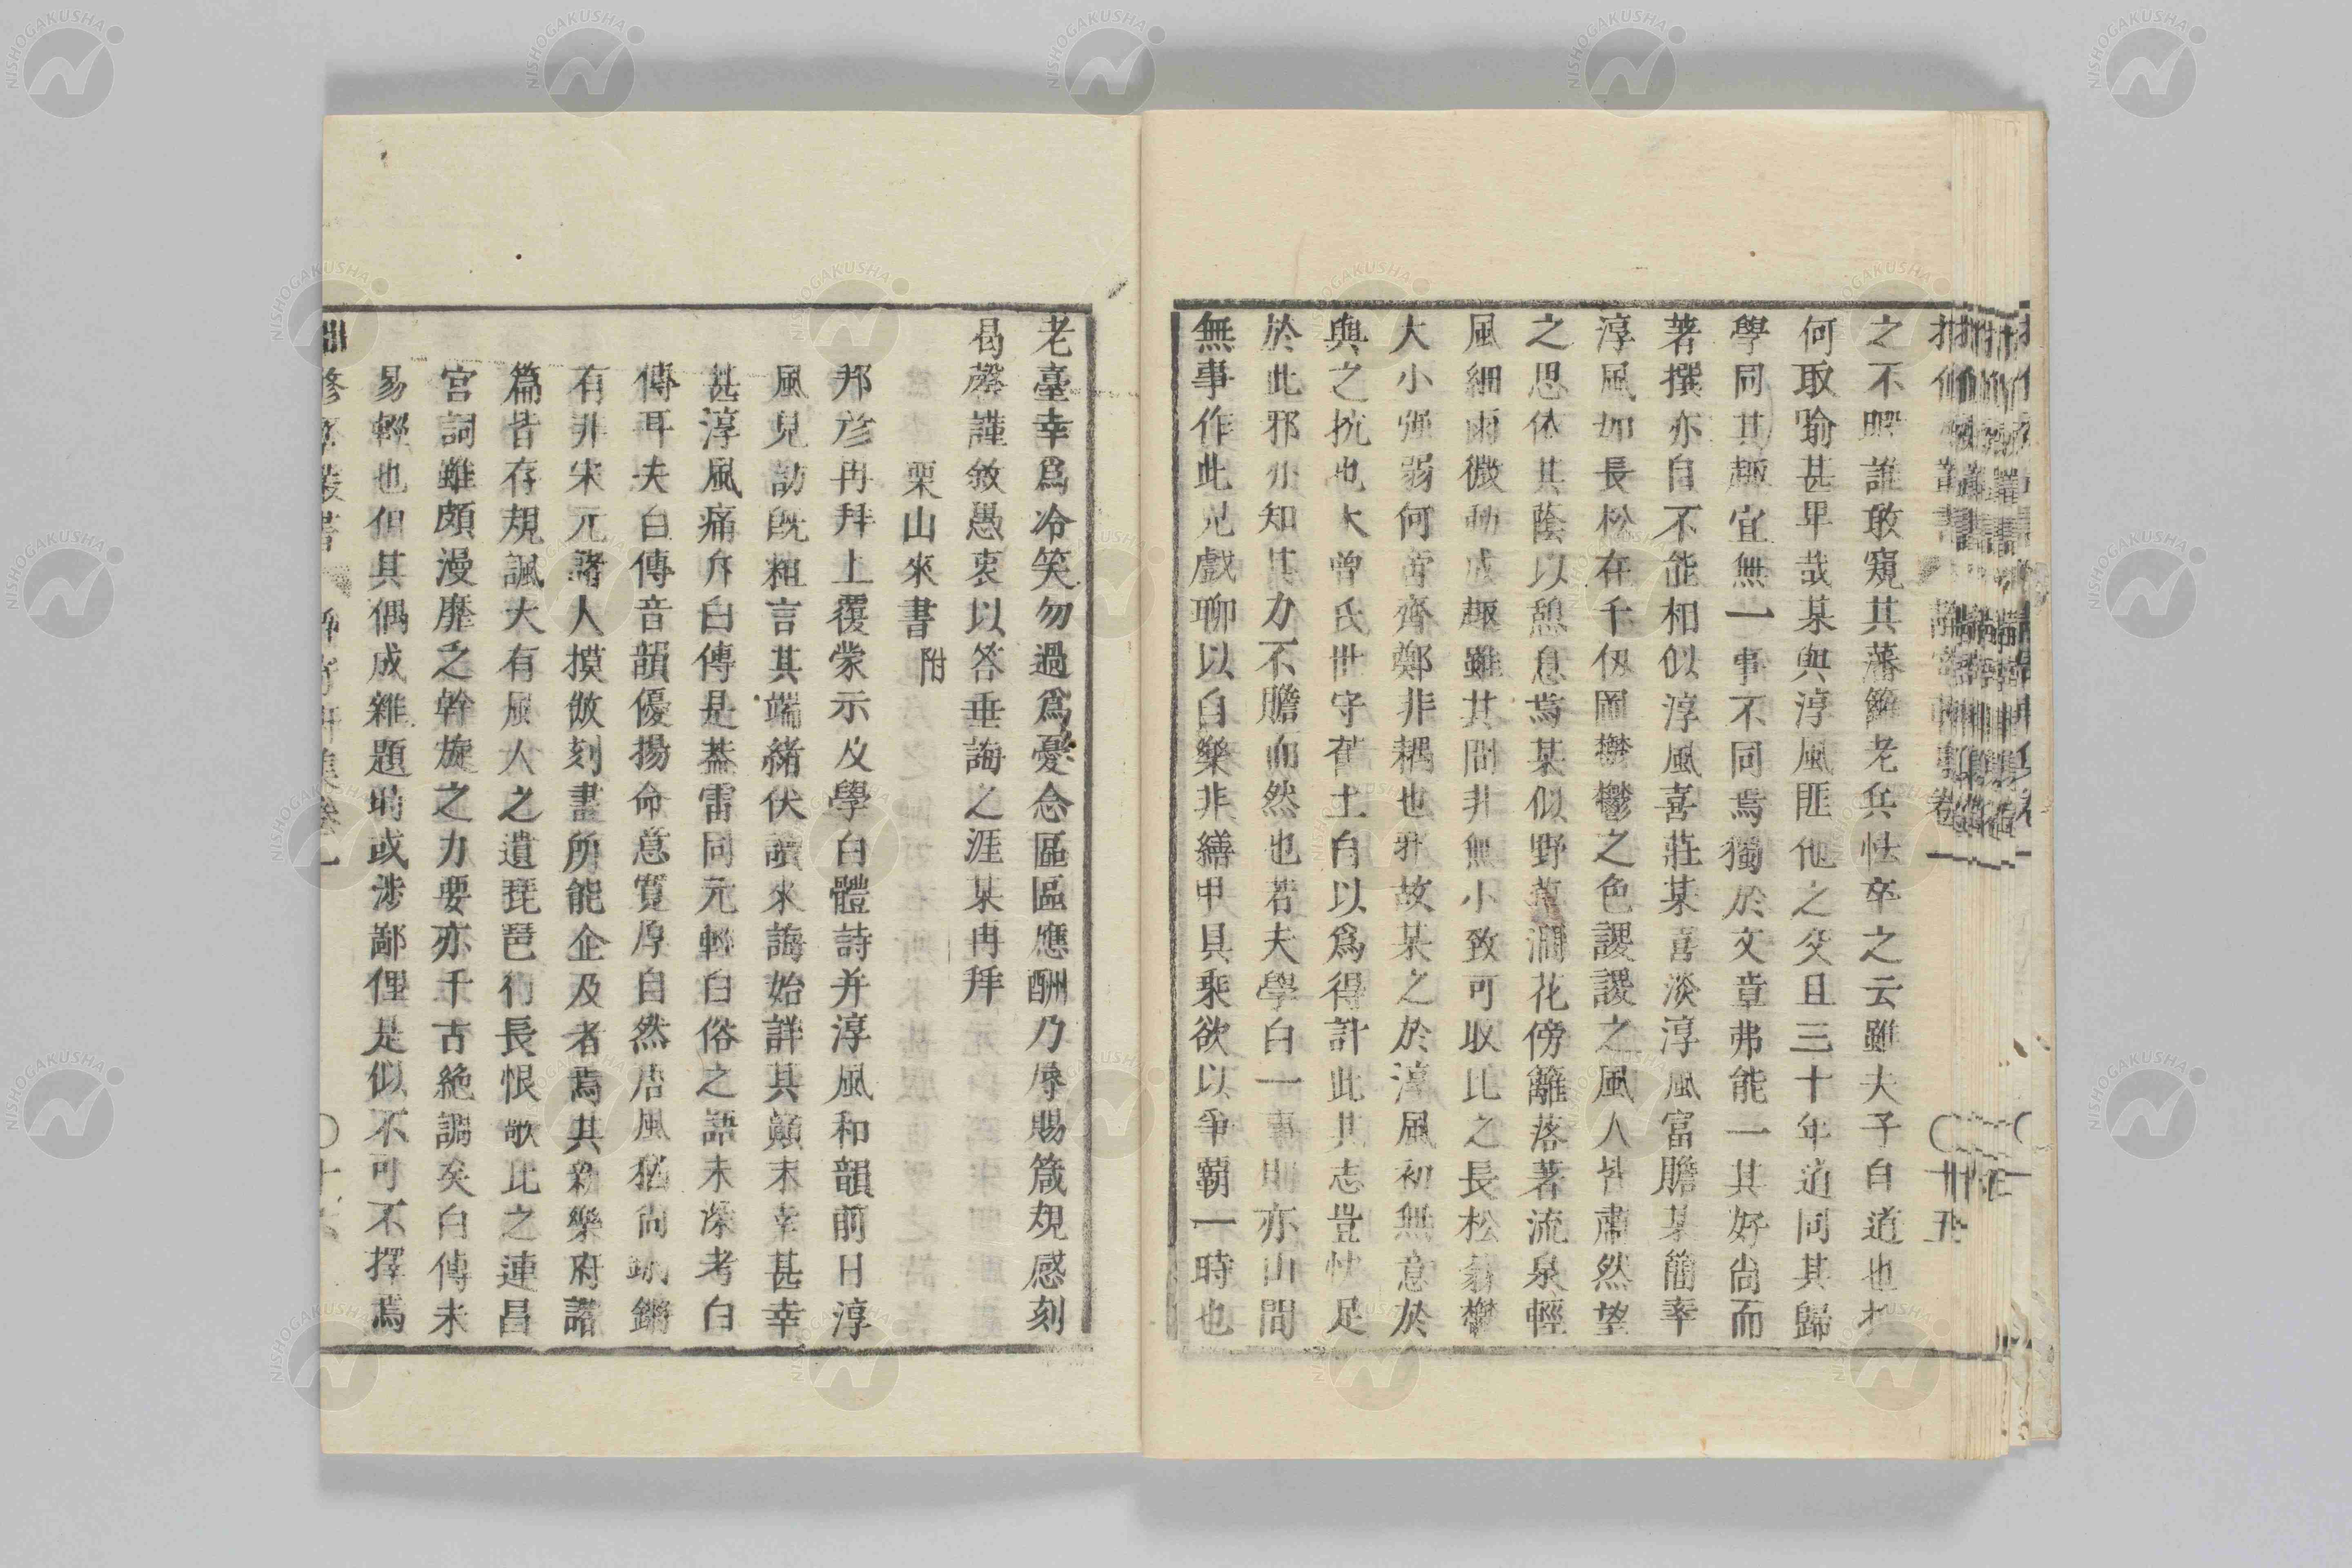 之不興誰敢窺其藩籬老兵怯卒之云雖夫子自道也
何取喻甚卑哉某與淳風匪他之交且三十年道同其歸
學同其趣宜無一事不同焉獨於文章弗能一其好尚而
著撰亦自不能相似淳風喜莊某喜淡淳風富贍某簡率
淳風如長松在千仞岡欝鬱之色謖謖之風人皆肅然望
之思休其蔭以憩息焉某似野草澗花傍籬落著流泉輕
風細雨微動成趣雖其間非無小致可取比之長松蓊欝
大小強弱何啻齊鄭非耦也邪故某之於淳風初無意於
與之抗也大曾氏世守舊土自以爲得計此其志豈快足
於此邪亦知其力不贍而然也若夫學白一事則亦山間
無事作此兒戲聊以自樂非繕甲具乘欲以爭霸一時也
老臺幸爲冷笑勿過爲憂念區區應酬乃辱賜箴規感刻
曷罄謹敘愚衷以答垂誨之涯某冉拜
栗山來書附
邦彦冉拜上覆蒙示及學白體詩并淳風和韻前日淳
風見訪旣粗言其端緒伏讀來誨始詳其顚末幸甚幸
甚淳風痛斥白傳是葢雷同元輕白俗之語未深考白
傳耳夫白傳音韻優揚命意寛厚自然居風猶尚鏘
有非宋元諸人摸倣刻畫所能企及者焉其新樂府諸
篇皆存規諷大有風人之遺琵琶行長恨歌比之連昌
宮詞雖頗漫靡之幹旋之力要亦千古絶調矣白傳未
易輕也但其偶成雜題時或渉鄙俚是似不可不擇焉